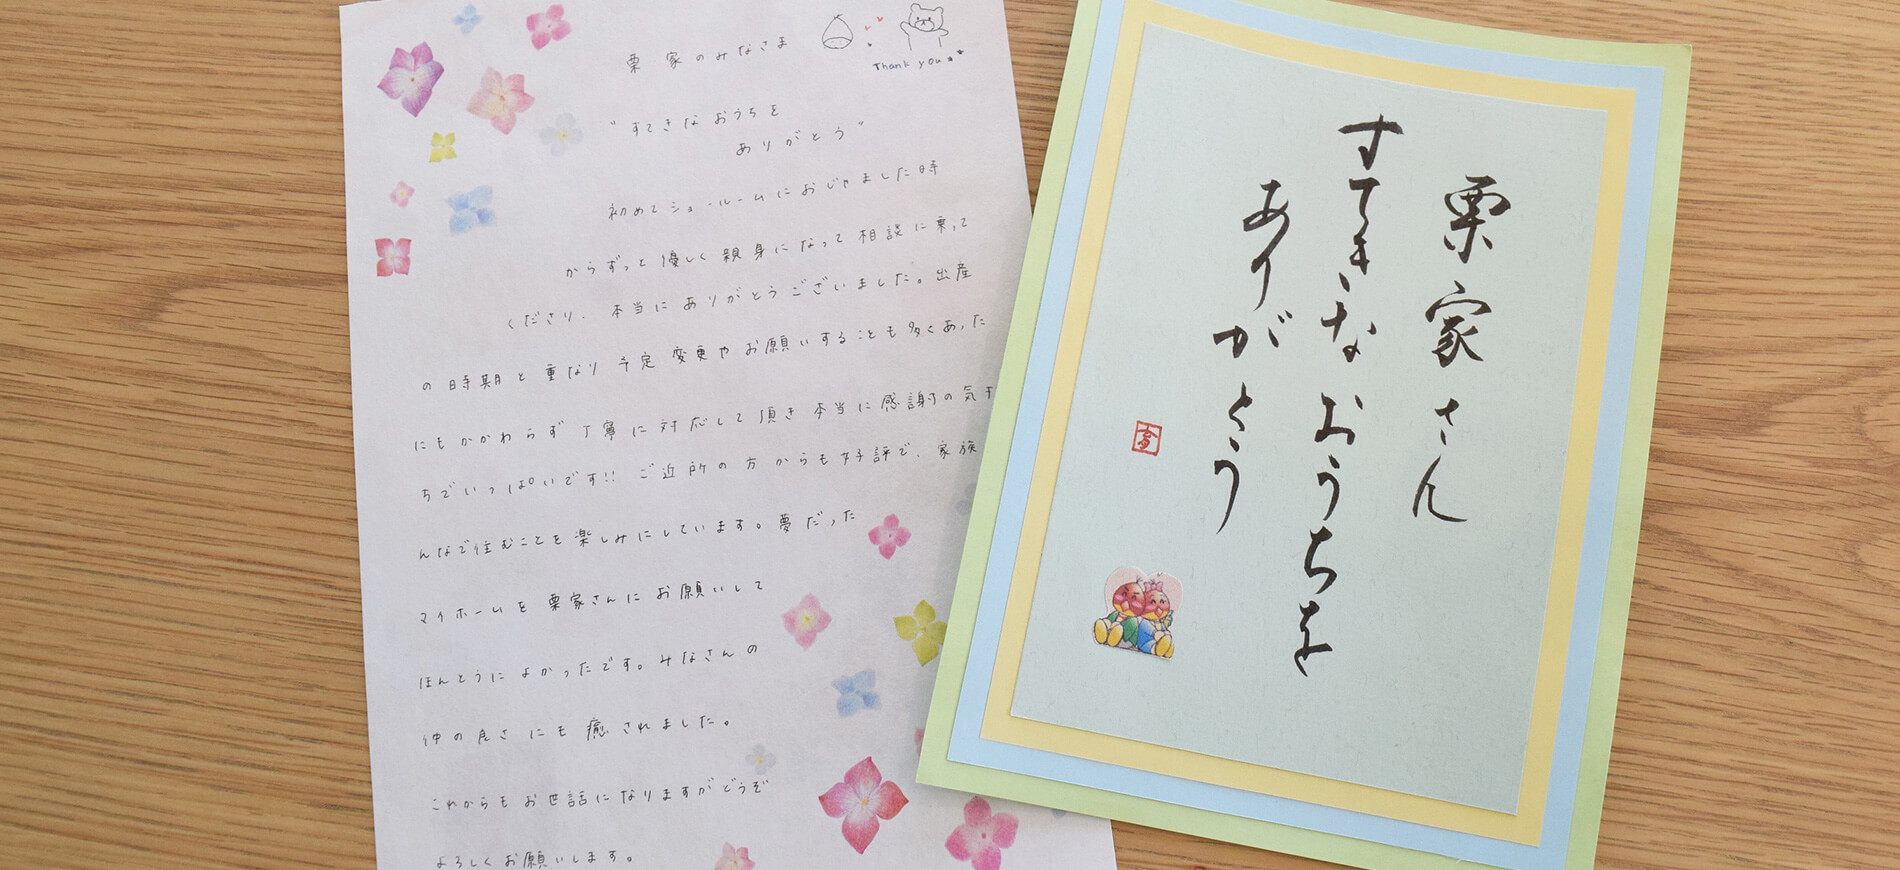 栗家のみなさま
Thank you
"すてきなおうちを
ありがとう"
初めてショールームにおじゃました時
からずっと優しく親身になって相談に乗って
くださり、本当にありがとうございました。出産
の時期と重なり予定変更やお願いすることも多くあった
にもかかわらず丁寧に対応して頂き本当に感謝の気持
ちでいっぱいです!!ご近所の方からも好評で、家族
んなで住むことを楽しみにしています。夢だった
マイホームを栗家さんにお願いして
ほんとうによかったです。みなさんの
仲の良さにも癒されました。
これからもお世話になりますがどうぞ
よろしくお願いします。
栗家さん
すてきなおうちを
ありがとう